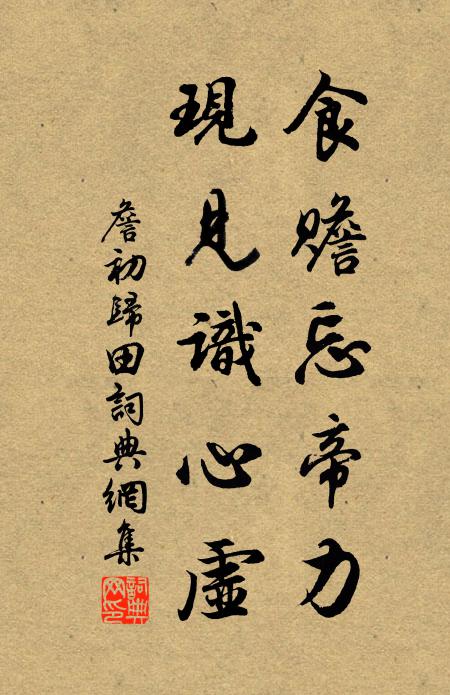 食贍忘帝力
現見識心虛
詹初歸田詞典網集
詞典网印